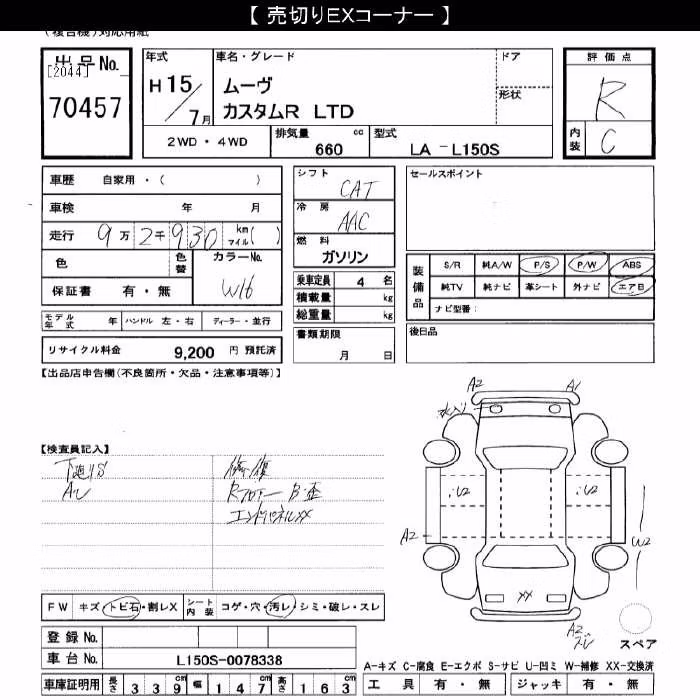 【 売切りEXコーナー 】
(複合機)対応用紙
出品No.
[2044]
70457
年式
H 15/7月
車名・グレード
ムーヴ
カスタムR LTD
ドア
形状
2WD・4WD
排気量 cc
660
型式
LA - L150S
評価点
R
内装 C
車歴 自家用・( )
車検 年 月
走行 9万2千930 km マイル( )
色
色替
カラーNo.
W16
保証書 有・無
シフト
CAT
冷房
AAC
燃料
ガソリン
乗車定員 4 名
積載量 kg
総重量 kg
セールスポイント
装備品
S/R 純A/W P/S P/W ABS
純TV 純ナビ 革シート 外ナビ エアB
ナビ型番:
モデル年式 年 ハンドル 左・右 ディーラー・並行
リサイクル料金 9,200 円 預託済
書類期限
月 日
後日品
【出品店申告欄(不良箇所・欠品・注意事項等)】
A2 A1
水入り
【検査員記入】
下廻りS
修復
RフロアーB・歪
エンドパネルXX
U2 U2
A2
W2
XX
A2
スペア
FW キズ・トビ石・割レX シート内装 コゲ・穴・汚レ・シミ・破レ・スレ
登録No.
車台No. L150S-0078338
車庫証明用 長さ 339cm 幅 147cm 高さ 163cm
A-キズ C-腐食 E-エクボ S-サビ U-凹ミ W-補修 XX-交換済
工具 有・無 ジャッキ 有・無